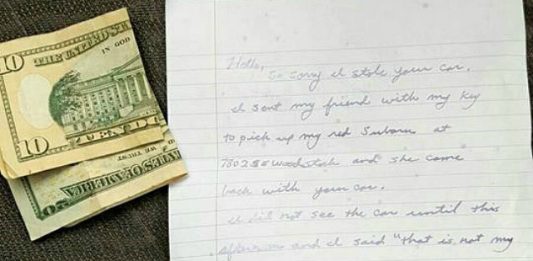 10
THE UNITED STA
IN GOD
10
TEN DO
WE TRUST
STATES OF AMERICA
20
Hello,
So sorry I stole your car.
I sent my friend with my key
to pick up my red Subaru at
7802 SE Woodstock and she came
back with your car.
I did not see the car until this
afternoon and I said "that is not my